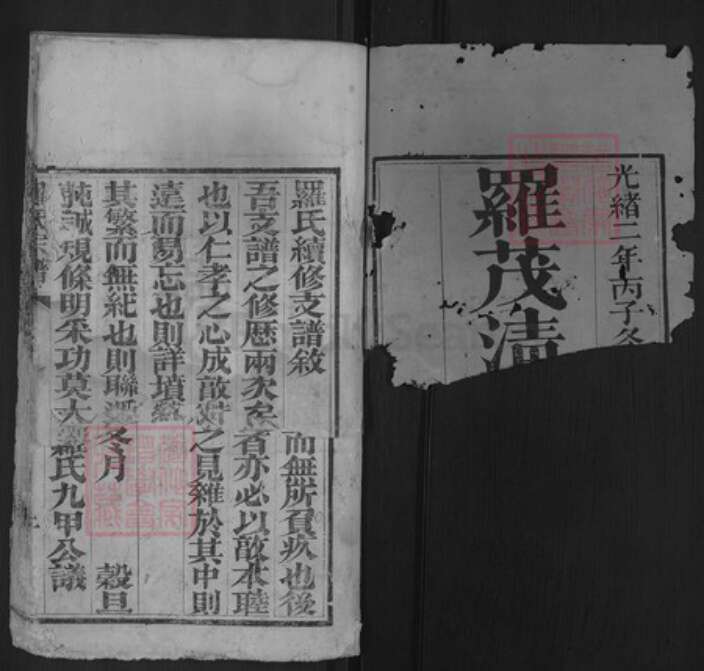 光緒二年丙子冬
羅茂清
羅氏續修支譜敘
而無所負疚也後
吾支譜之修歷兩次矣
者亦必以敵本睦
也以仁孝之心成敵
之見雜於其中則
遠而易忘也則詳墳
其繁而無紀也則聯
冬月 穀旦
規條明采功莫大
羅氏九甲公議